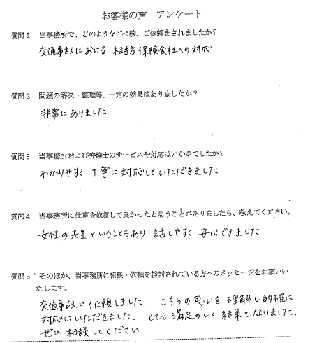 お客様の声 アンケート
質問1 当事務所で、どのようなご相談、ご依頼をされましたか？
交通事故における 相手方保険会社への対応
質問2 問題の解決・整理等、一定の効果はありましたか？
非常にありました
質問3 当事務所および弁護士のサービスや対応はいかがでしたか？
わかりやすく 丁寧に対応していただきました
質問4 当事務所に仕事を依頼して良かったと思うことがありましたら、教えてください。
女性の先生ということもあり 話しやすく 安心できました
質問5 そのほか、当事務所に相談・依頼を検討されている方へのメッセージをお願いいたします。
交通事故で依頼しました こちらの気持ちを理解し 的確に
対応していただきました。とても満足のいく結果となりました。
ぜひ相談してください